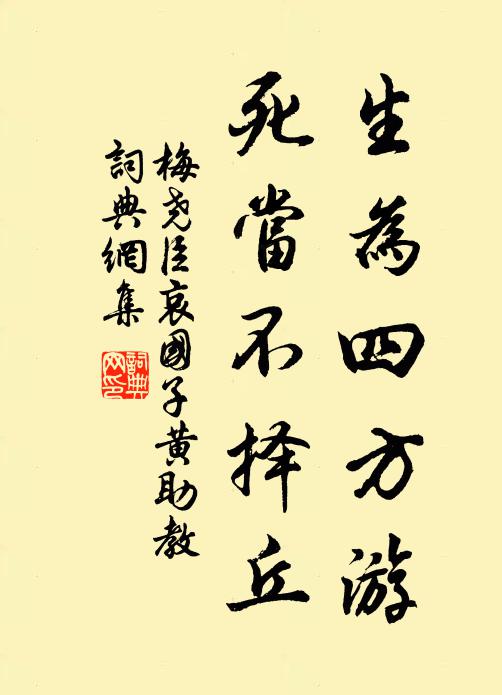 生為四方游
死當不择丘
梅尧臣哀國子黄助教
詞典網集
詞典网印